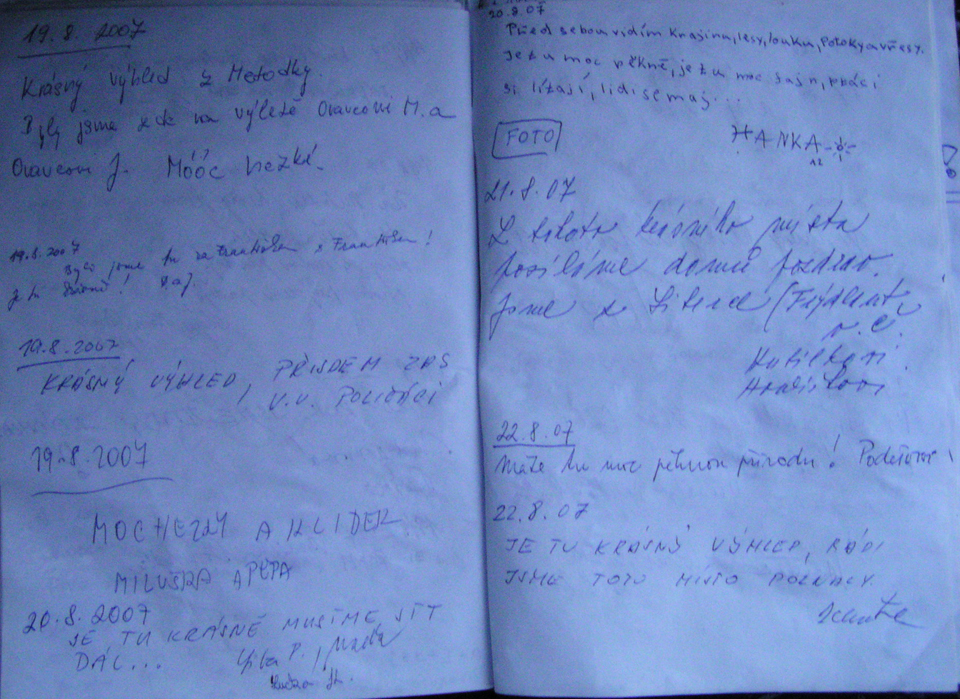 19.8.2007
Krásný výhled z Metodky.
Byli jsme zde na výletě Oravcovi M. a
Oravcovi J. Móóc hezké.
19.8.2007
Byli jsme tu za František s František!
je tu krásně!
19.8.2007
KRÁSNÝ VÝHLED, PŘIJDEM ZAS
V.V. POLIČÁCI
19.8.2007
MOC HEZKÝ A KLIDEK
MILUŠKA A PEPA
20.8.2007
JE TU KRÁSNĚ MUSÍME JÍT
DÁL...
20.8.07
Před sebou vidím krajinu, lesy, louku, potoky a vřesy.
Je tu moc pěkně, je tu moc fajn, ptáci
si lítají, lidi se mají...
FOTO
HANKA
12
21.8.07
Z tohoto krásného místa
posíláme domů pozdrav.
Jsme z Liberce (Frýdlant
v Č.
Kubíkovi
Hradiškovi
22.8.07
Máte tu moc pěknou přírodu!
22.8.07
JE TU KRÁSNÝ VÝHLED, RÁDI
JSME TOTO MÍSTO POZNALY